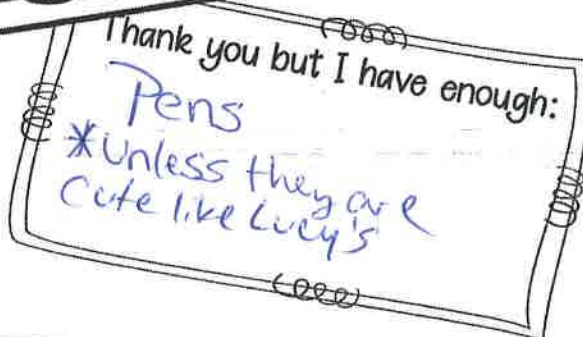 Thank you but I have enough:
Pens
*Unless they are
Cute like Lucy's